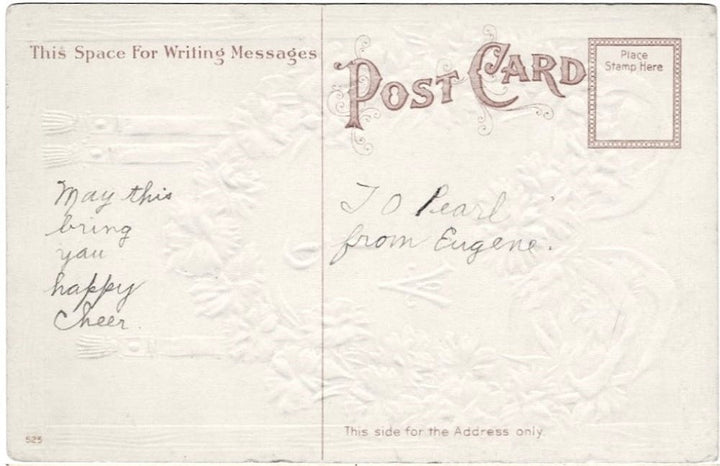 This Space For Writing Messages
POST CARD
Place
Stamp Here
May this
bring
you
happy
Cheer.
TO Pearl
from Eugene.
525
This side for the Address only.